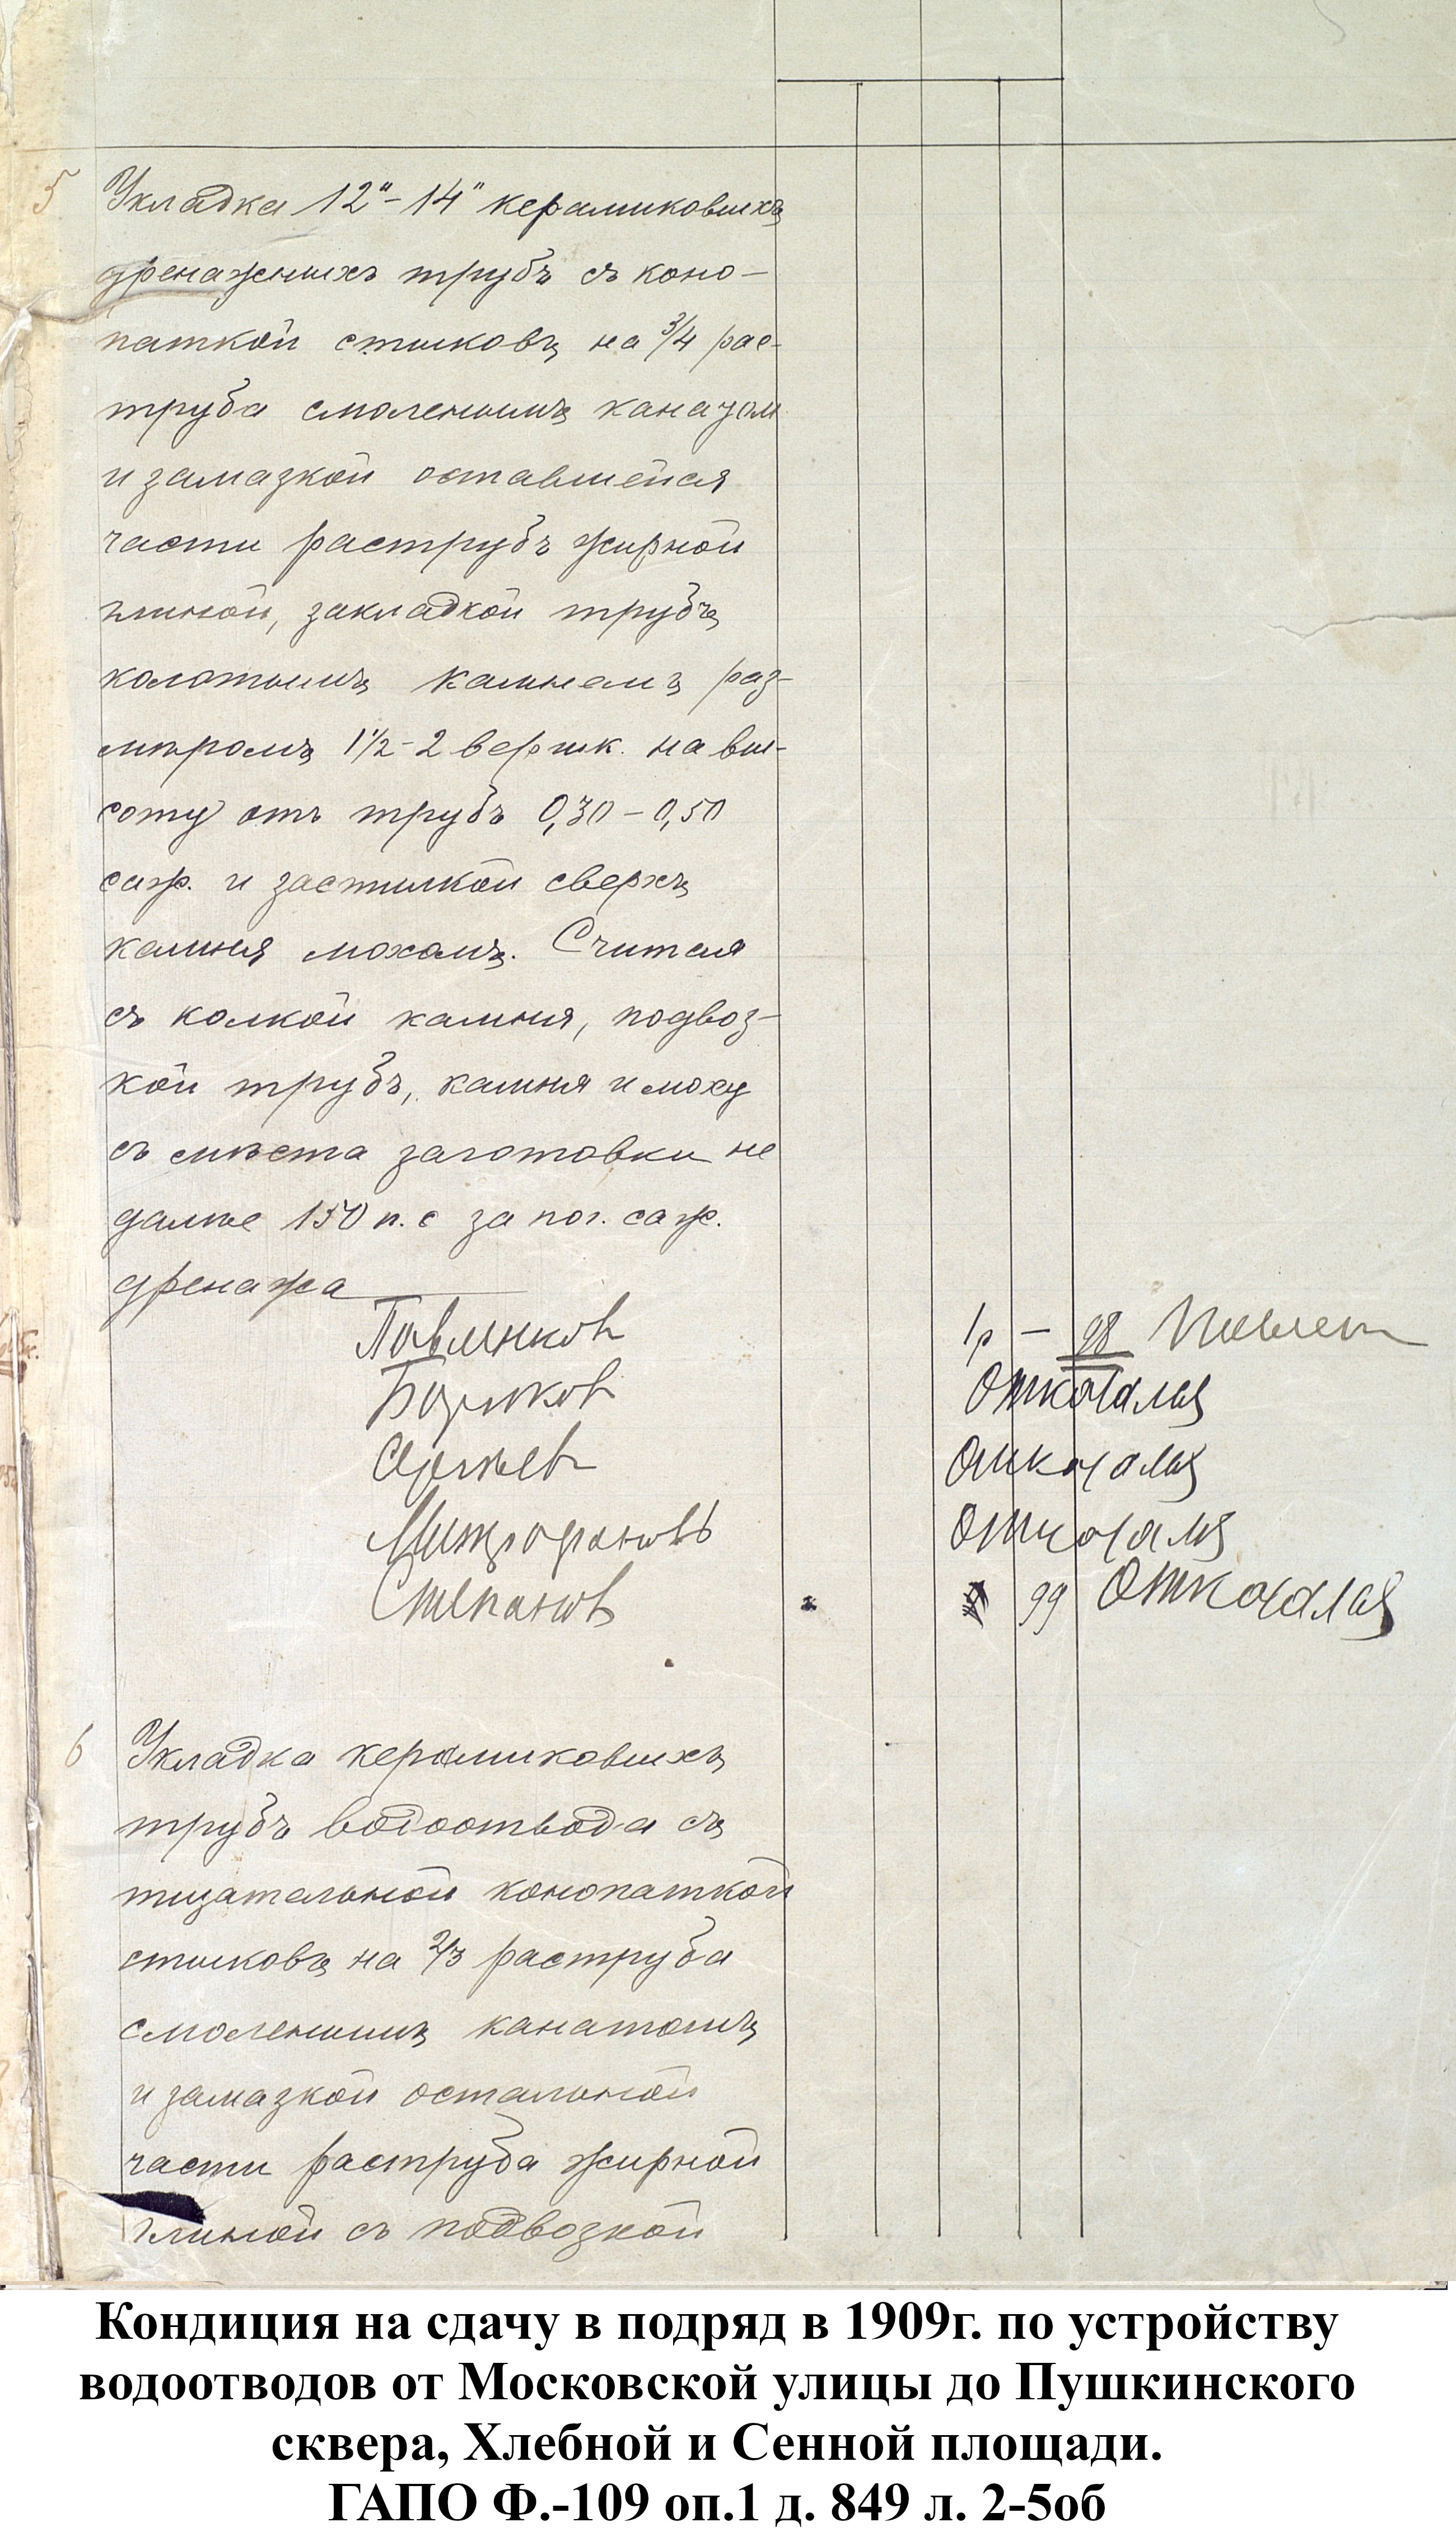 5 Укладка 12"-14" керамиковыхъ
дренажныхъ трубъ съ коно-
паткой стыковъ на 3/4 рас-
труба смоленымъ канатом
и замазкой оставшейся
части раструбъ жирной
глиной, закладкой трубъ
колотымъ камнемъ раз-
мѣромъ 1½-2 вершк. на вы-
соту отъ трубъ 0,30-0,50
саж. и застилкой сверхъ
камня мохомъ. Считая
съ колкой камня, подвоз-
кой трубъ, камня и моху
съ мѣста заготовки не
далѣе 150 п. с за пог. саж.
дренажа
Павлинков 1р - 98
Отказался
Сергѣев Отказался
Митрофановъ Отказался
Степанов 99 Отказался
6 Укладка керамиковыхъ
трубъ водоотвода съ
тщательной конопаткой
стыковъ на 2/3 раструба
смоленымъ канатомъ
и замазкой остальной
части раструба жирной
глиной съ подвозкой
Кондиция на сдачу в подряд в 1909г. по устройству
водоотводов от Московской улицы до Пушкинского
сквера, Хлебной и Сенной площади.
ГАПО Ф.-109 оп.1 д. 849 л. 2-5об